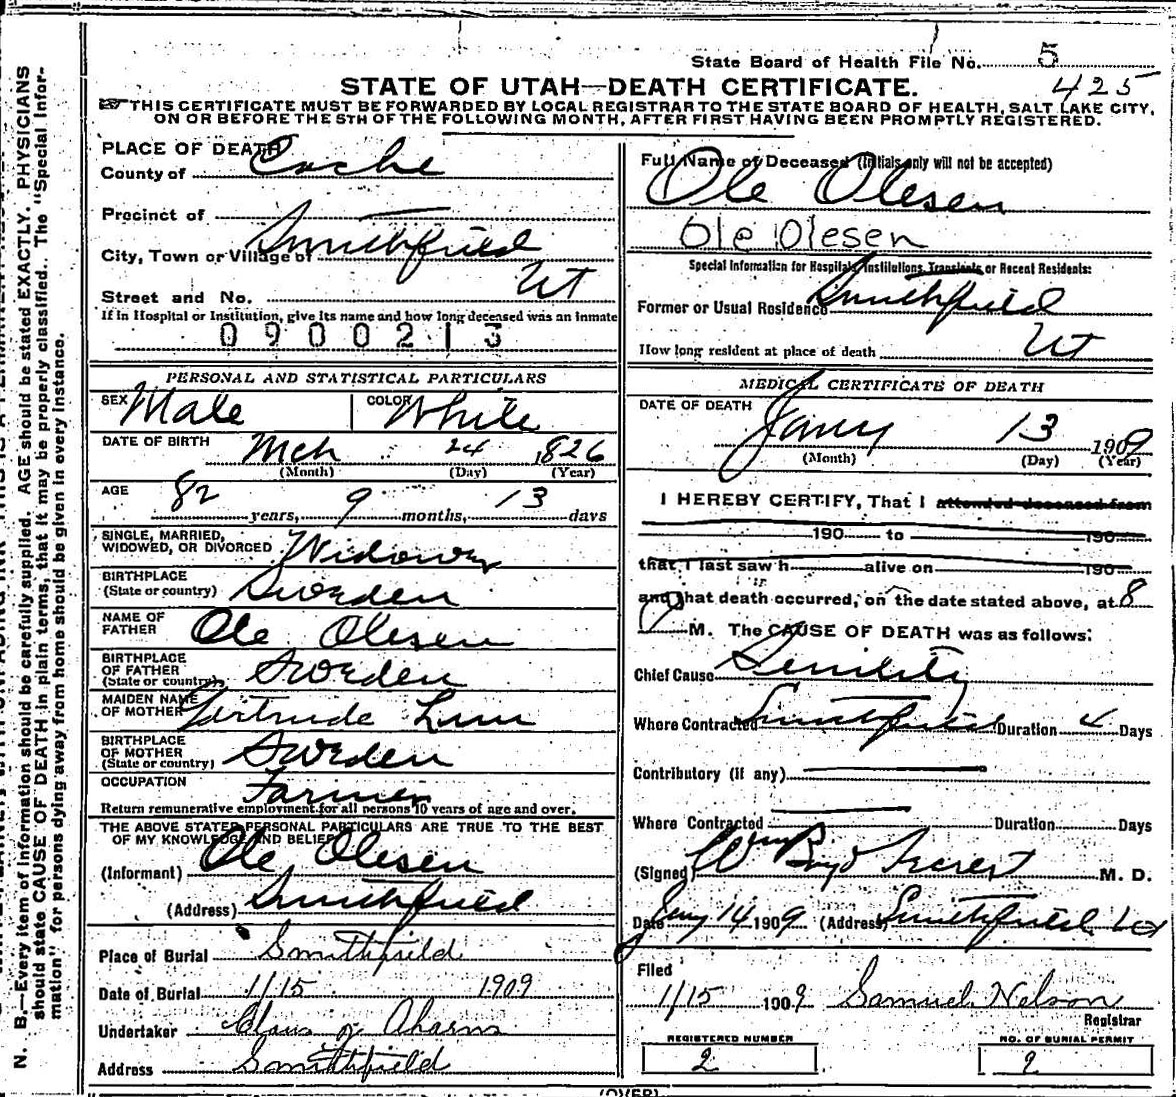 State Board of Health File No. 5
425
STATE OF UTAH—DEATH CERTIFICATE.
THIS CERTIFICATE MUST BE FORWARDED BY LOCAL REGISTRAR TO THE STATE BOARD OF HEALTH, SALT LAKE CITY,
ON OR BEFORE THE 5TH OF THE FOLLOWING MONTH, AFTER FIRST HAVING BEEN PROMPTLY REGISTERED.
PLACE OF DEATH
County of Cache
Precinct of
City, Town or Village of Smithfield
Street and No. Ut
If in Hospital or Institution, give its name and how long deceased was an inmate
0900213
PERSONAL AND STATISTICAL PARTICULARS
SEX Male COLOR White
DATE OF BIRTH Mch 24 1826
(Month) (Day) (Year)
AGE 82 years, 9 months, 13 days
SINGLE, MARRIED,
WIDOWED, OR DIVORCED Widower
BIRTHPLACE
(State or country) Sweden
NAME OF
FATHER Ole Olesen
BIRTHPLACE
OF FATHER
(State or country) Sweden
MAIDEN NAME
OF MOTHER Gertrude
BIRTHPLACE
OF MOTHER
(State or country) Sweden
OCCUPATION Farmer
Return remunerative employment for all persons 10 years of age and over.
THE ABOVE STATED PERSONAL PARTICULARS ARE TRUE TO THE BEST
OF MY KNOWLEDGE AND BELIEF
(Informant) Ole Olesen
(Address) Smithfield
Place of Burial Smithfield
Date of Burial 1/15 1909
Undertaker
Address Smithfield
Full Name of Deceased (Initials only will not be accepted)
Ole Olesen
Ole Olesen
Special Information for Hospitals, Institutions, Transients or Recent Residents:
Former or Usual Residence Smithfield
How long resident at place of death Ut
MEDICAL CERTIFICATE OF DEATH
DATE OF DEATH
Jany 13 1909
(Month) (Day) (Year)
I HEREBY CERTIFY, That I attended deceased from
190 to 190
that I last saw h alive on 190
and that death occurred, on the date stated above, at 8
M. The CAUSE OF DEATH was as follows:
Chief Cause Senility
Where Contracted Smithfield Duration 4 Days
Contributory (if any)
Where Contracted Duration Days
(Signed) Wm M. D.
Date Jany 14 1909 (Address) Smithfield
Filed
1/15 1909 Samuel Nelson
Registrar
REGISTERED NUMBER
2
NO. OF BURIAL PERMIT
2
(OVER)
N. B.—Every item of information should be carefully supplied. AGE should be stated EXACTLY. PHYSICIANS
should state CAUSE OF DEATH in plain terms, that it may be properly classified. The "Special Infor-
mation" for persons dying away from home should be given in every instance.